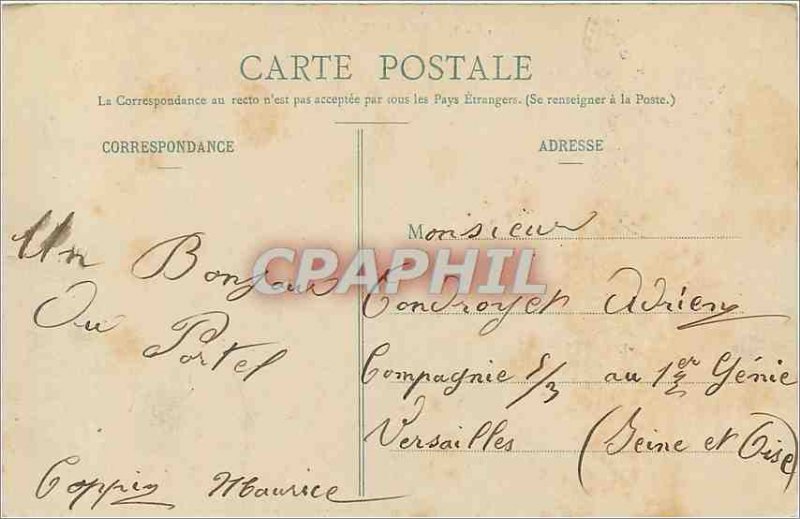 CARTE POSTALE
La Correspondance au recto n'est pas acceptée par tous les Pays Étrangers. (Se renseigner à la Poste.)
CORRESPONDANCE
Un Bonjour
Du
Portel
Coppin Maurice
ADRESSE
Monsieur
Condroyer Adrien
Compagnie 5/3 au 1er Génie
Versailles (Seine et Oise)
CPAPHIL